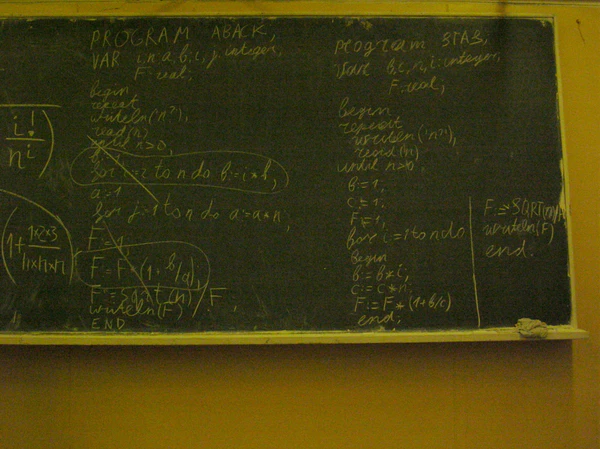 PROGRAM ABACK;
VAR i, n, a, b, i, j: integer;
F: real;
begin
repeat
writeln('n?');
read(n)
until n>0;
for i=2 to n do b:=i*b;
a=1
for j=1 to n do a:=a*n;
F=1;
F=F*(1+b/a);
F=sqrt(n)/F;
writeln(F)
END
i!
n^i
1+ 1×2×3
n×n×n
program STAS;
var b, c, n, i: integer;
F: real;
begin
repeat
writeln('n?');
read(n)
until n>0
b=1;
c=1;
F=1;
for i=1 to n do
begin
b:=b*i;
c:=c*n;
F:=F*(1+b/c)
end;
F:=SQRT(n)/F
writeln(F)
end.